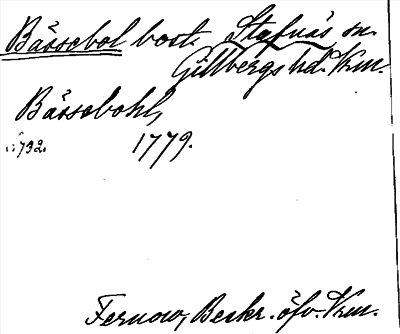 Bässebol bost. Stafnäs sn.
Gillbergs hd. Vrm.
Bässebohl,
s. 732. 1779.
Fernow, Beskr. öfv. Vrm.